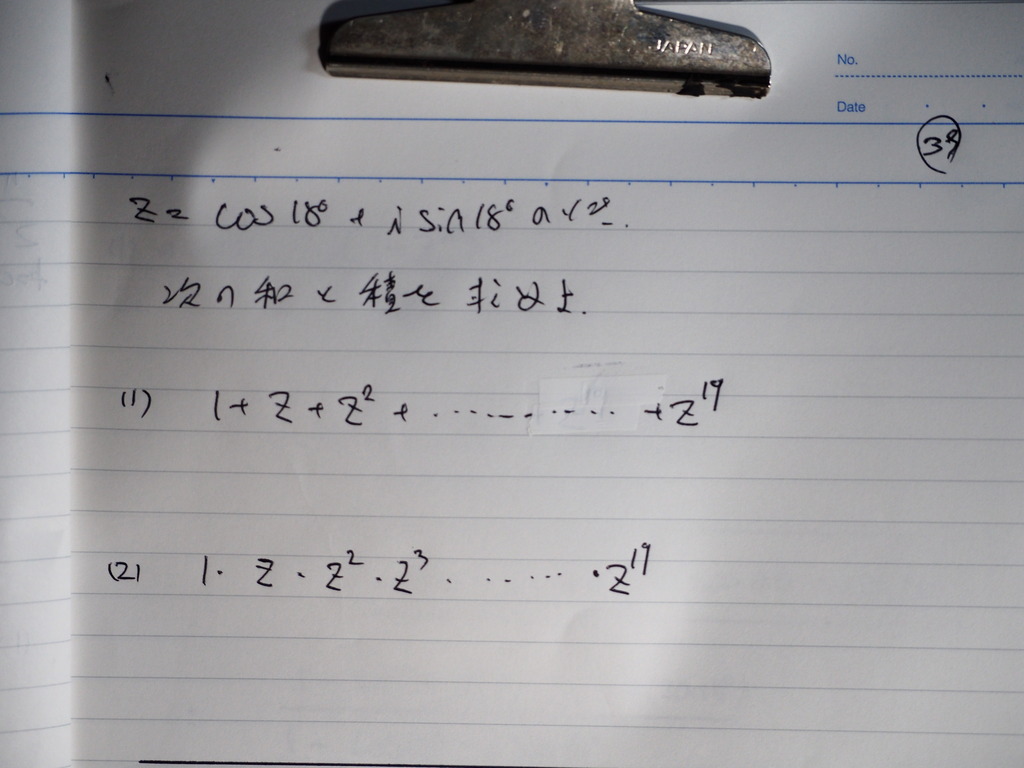 JAPAN
No.
Date
38
z = cos 18° + i sin 18° のとき.
次の和と積を求めよ.
(1) 1 + z + z² + ‥‥‥‥‥ + z¹⁹
(2) 1 · z · z² · z³ · ‥‥‥ · z¹⁹